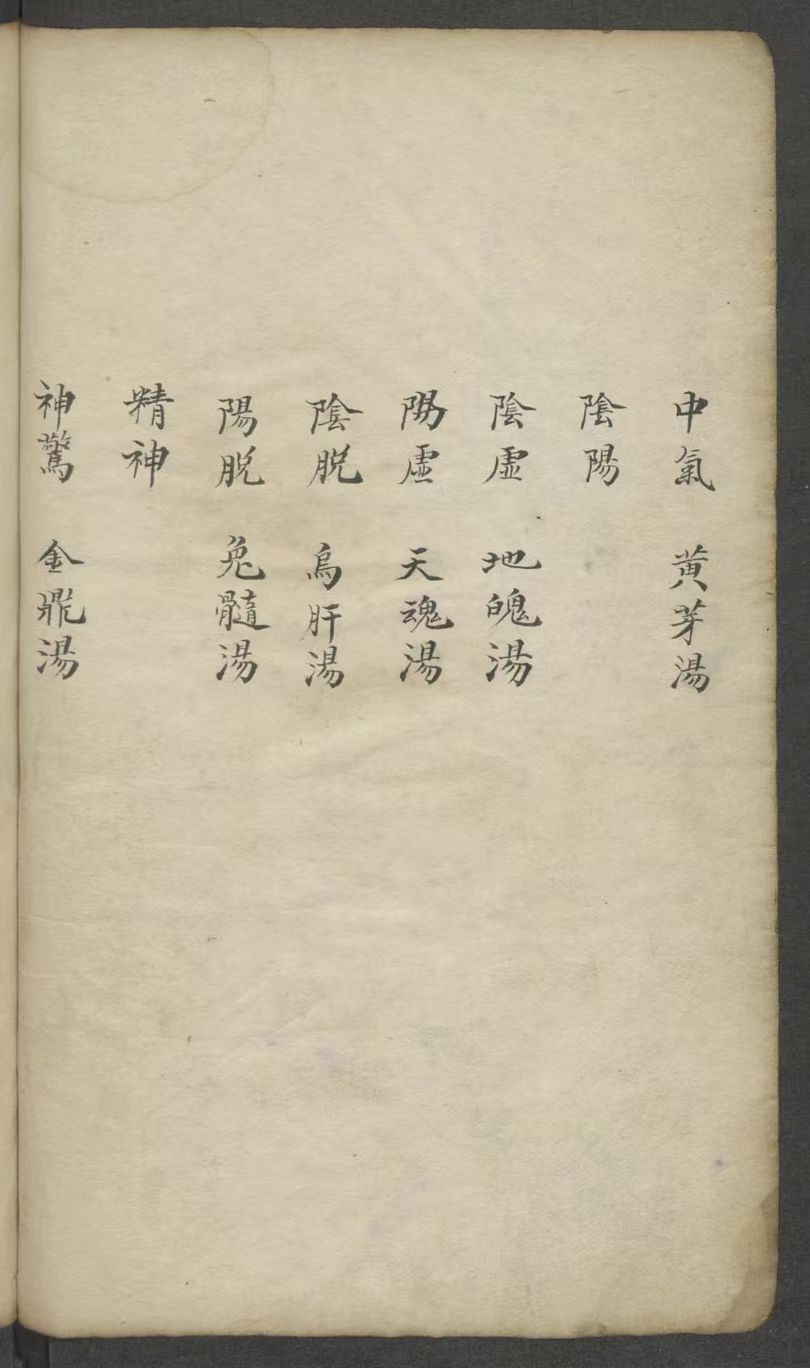 中氣 黄芽湯
陰陽
陰虛 地魄湯
陽虛 天魂湯
陰脫 烏肝湯
陽脫 兔髓湯
精神
神驚 金鼎湯